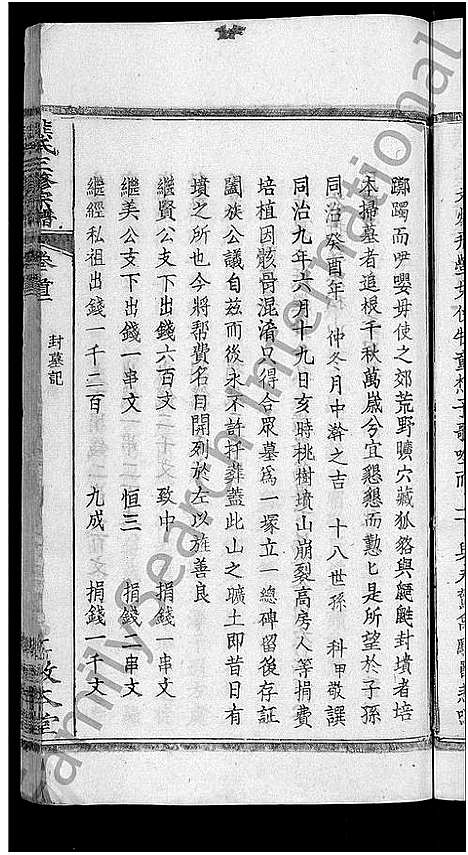 躑躅而咿嚶毋使之郊荒野曠穴藏狐貉與鼯鼪封墳者培
本掃墓者追根千秋萬歲兮宜懇懇而懃匕是所望於子孫
同治癸酉年 仲冬月中澣之吉 十八世孫 科甲敬譔
同治九年六月十九日亥時桃樹墳山崩裂高房人等捐費
培植因骸骨混淆只得合眾墓爲一塚立一總碑留後存証
闔族公議自茲而後永不許扦葬蓋此山之曠土即昔日有
墳之所也今將帮費名目開列於左以旌善良
繼賢公支下出錢六百文 致中 捐錢一串文
繼美公支下出錢一串文 恒三 捐錢一串文
繼經私祖出錢一千二百 九成 捐錢一千文
氏三修宗譜 卷首 封墓記 敦本堂
FamilySearch International